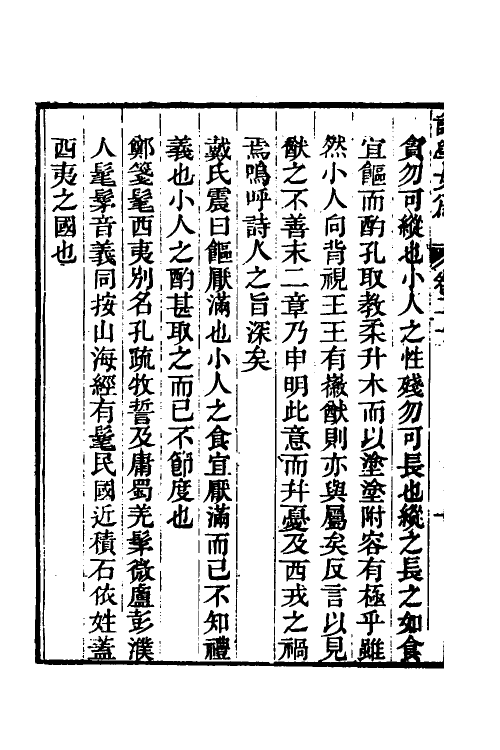 貪勿可縱也小人之性殘勿可長也縱之長之如食
宜饇而酌孔取教柔升木而以塗塗附容有極乎雖
然小人向背視王王有徽猷則亦與屬矣反言以見
猷之不善末二章乃申明此意而幷憂及西戎之禍
焉嗚呼詩人之旨深矣
戴氏震曰饇厭滿也小人之食宜厭滿而已不知禮
義也小人之酌甚取之而已不節度也
鄭箋髦西夷別名孔疏牧誓及庸蜀羌髳微盧彭濮
人髦髳音義同按山海經有髦民國近積石依姓蓋
西夷之國也